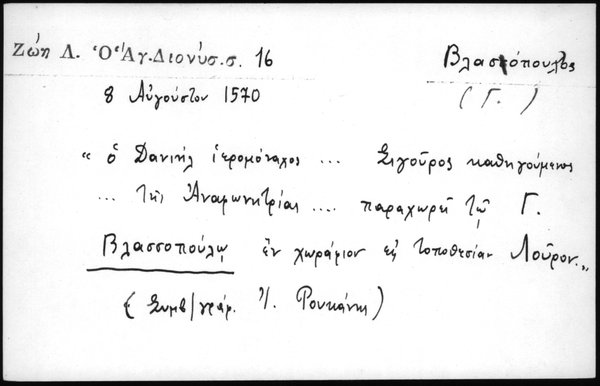 Ζώη Λ. Ὁ Ἅγ. Διονύσ. σ. 16
Βλασσόπουλος
(Γ.)
8 Αὐγούστου 1570
«ὁ Δανιήλ ἱερομόναχος ... Σιγοῦρος καθηγούμενος
... τῆς Ἀναφωνητρίας .... παραχωρεῖ τῷ Γ.
Βλασσοπούλῳ ἐν χωράφιον εἰς τοποθεσίαν Λοῦρον.»
(Συμβ/γράφ. Ἰ. Ρουκάνης)